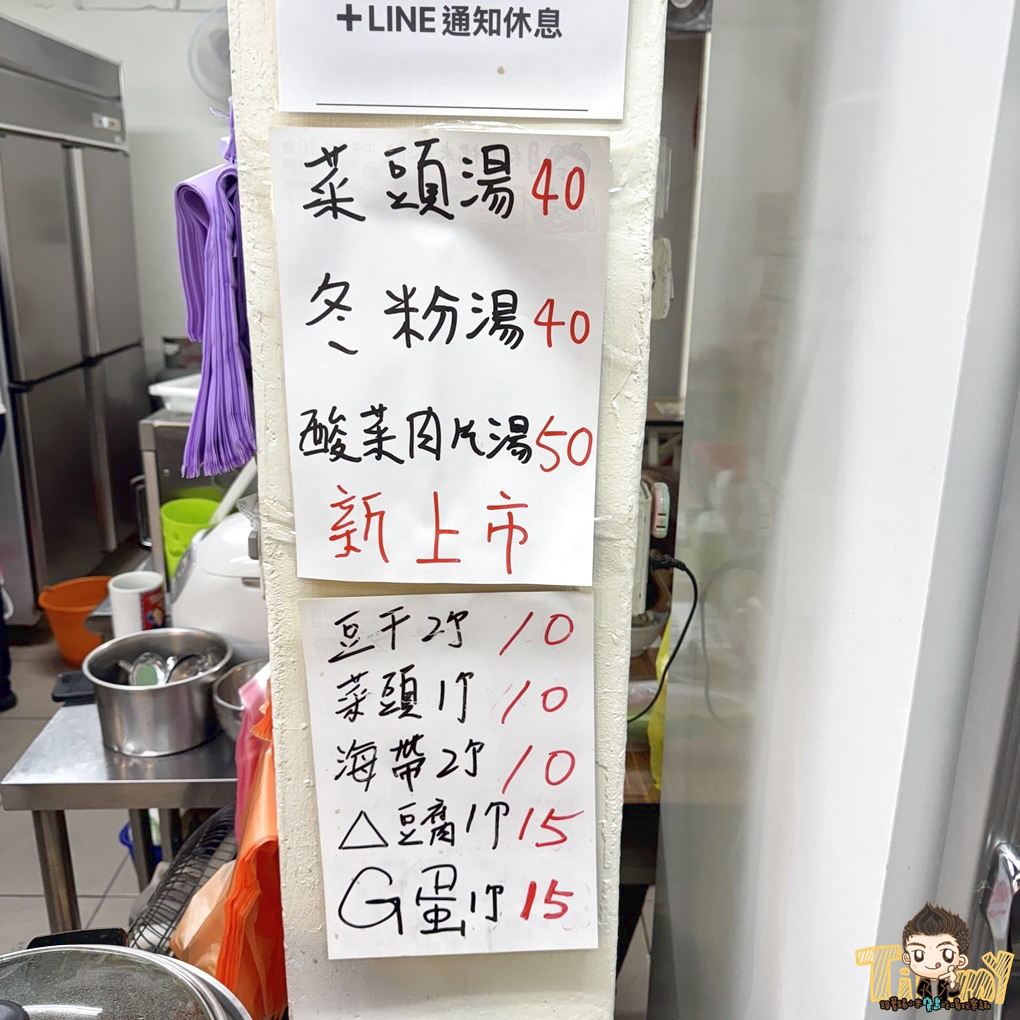 +LINE 通知休息
菜頭湯 40
冬粉湯 40
酸菜肉片湯 50
新上市
豆干2个 10
菜頭1个 10
海帶2个 10
△豆腐1个 15
G蛋1个 15
Timmy